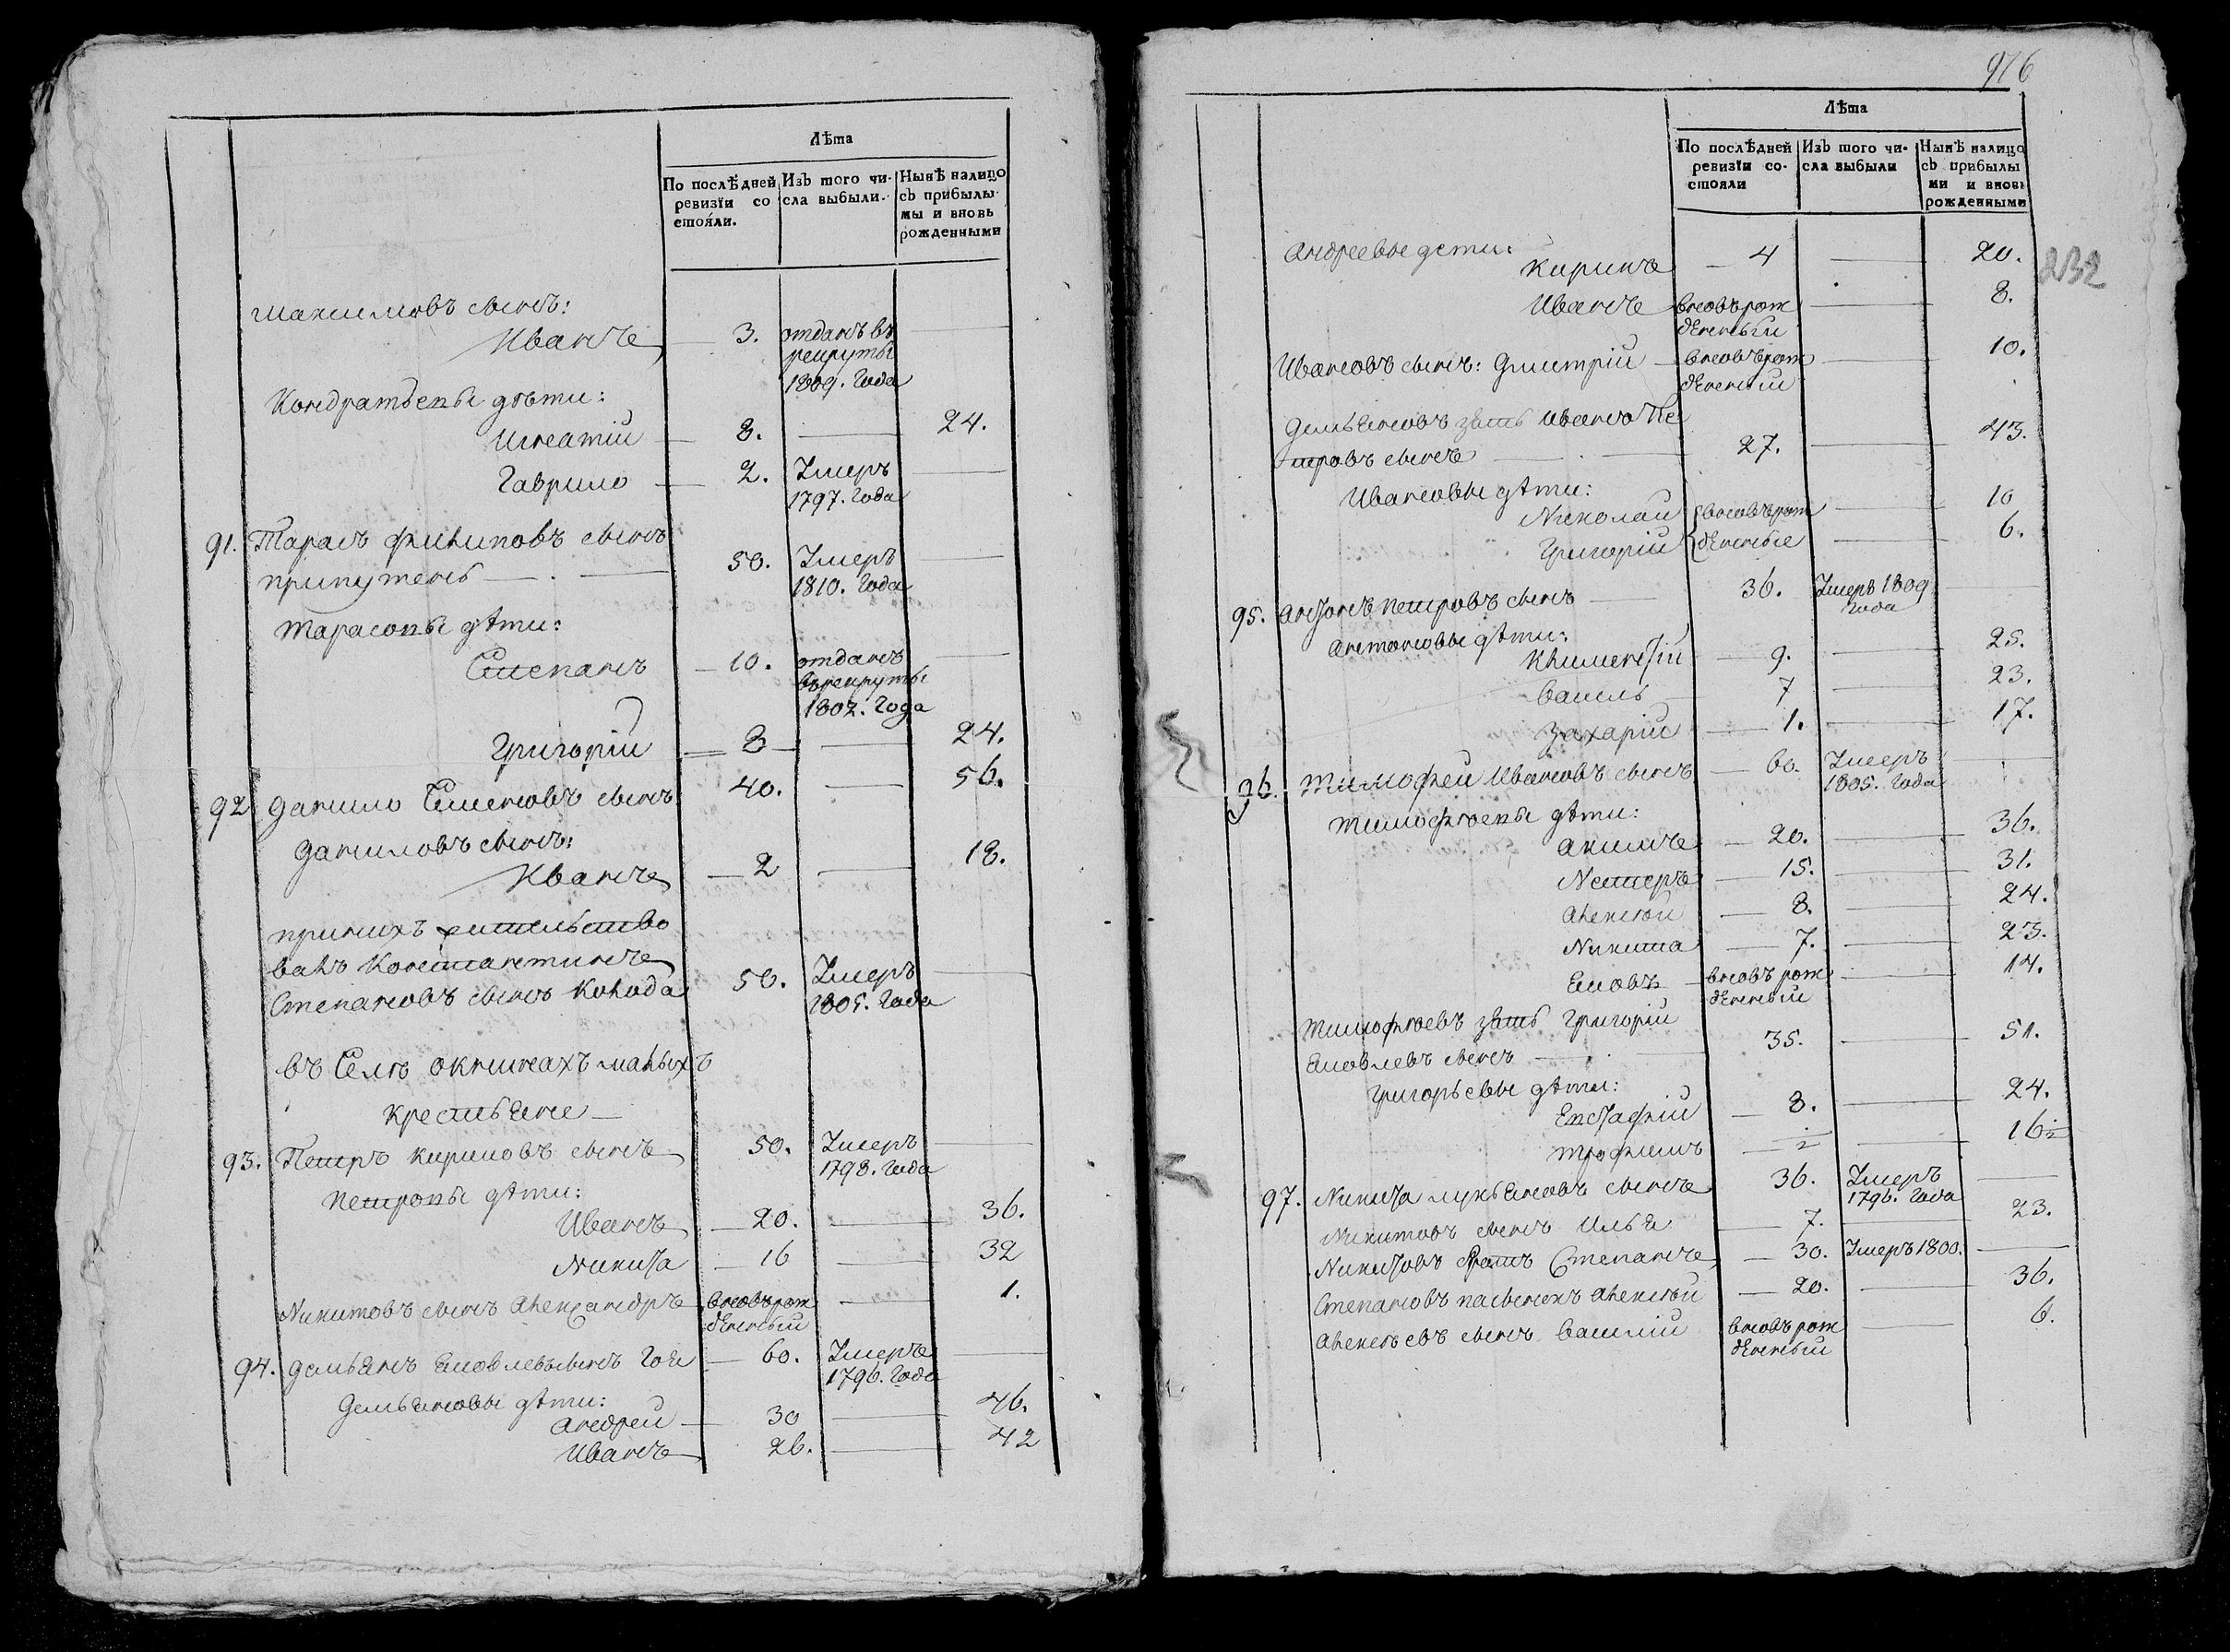 Лѣта
По послѣдней Изъ того чи- Нынѣ налицо
ревизїи со сла выбыли. съ прибылы
стоя́ли. мы и вновь
рожденными
Максимовъ сынъ:
Иванъ 3. отданъ въ
рекруты
1809. Года
Кондратьевы дѣти:
Игнатїй 8. 24.
Гаврило 2. Умеръ
1797. Года
91. Тарасъ Филиповъ сынъ
50. Умеръ
1810. Года
Тарасовы дѣти:
Степанъ 10. отданъ
врекруты
1802. Года
Григорїй 8 24.
92 Данило Семеновъ сынъ 40. 56.
Даниловъ сынъ:
Иванъ 2 18.
принихъ жительство
валъ Константинъ
Степановъ сынъ Колода 50. Умеръ
1805. Года
въ Селѣ окнинахъ малыхъ
крестьяне
93. Петръ Кириловъ сынъ 50. Умеръ
1798. Года
Петровы дѣти:
Иванъ 20. 36.
Никита 16 32
Никитовъ сынъ Александръ вновърож 1.
денный
94. Демьянъ Яковлевъ сынъ 60. Умеръ
1796. Года
Демьяновы дѣти:
Андрей 30 46.
Иванъ 26. 42
976
Лѣта
По послѣдней Изъ того чи- Нынѣ налицо
ревизїи со- сла выбыли съ прибылы
стояли ми и вновь
рожденными
232
Андреевы дети:
Кирикъ 4 20.
Иванъ вновърож 8.
денный
Ивановъ сынъ: Дмитрїй вновърож 10.
денный
Демьяновъ зять Иванъ Пе
тровъ сынъ 27. 43.
Ивановы дѣти:
Николай вновърож 10
Григорїй денные 6.
95. Антонъ Петровъ сынъ 36. Умеръ 1809
Года
Антоновы дѣти:
Климентїй 9. 25.
Василь 7 23.
Захарїй 1. 17.
96. Тимофей Ивановъ сынъ 60. Умеръ
1805. Года
Тимофѣевы дѣти:
Акимъ 20. 36.
Нестеръ 15. 31.
Алексѣй 8. 24.
Никита 7. 23.
Яковъ вновърож 14.
денный
Тимофѣевъ зять Григорїй
Яковлевъ сынъ 35. 51.
Григорьевы дѣти:
Евстафїй 8. 24.
Трофимъ 16
97. Никита Лукьяновъ сынъ 36. Умеръ
1796. Года
Никитовъ сынъ Илья 7. 23.
Никитовъ братъ Степанъ 30. Умеръ 1800.
Степановъ пасынокъ Алексѣй 20. 36.
Алексѣевъ сынъ Василїй вновърож 6.
денный